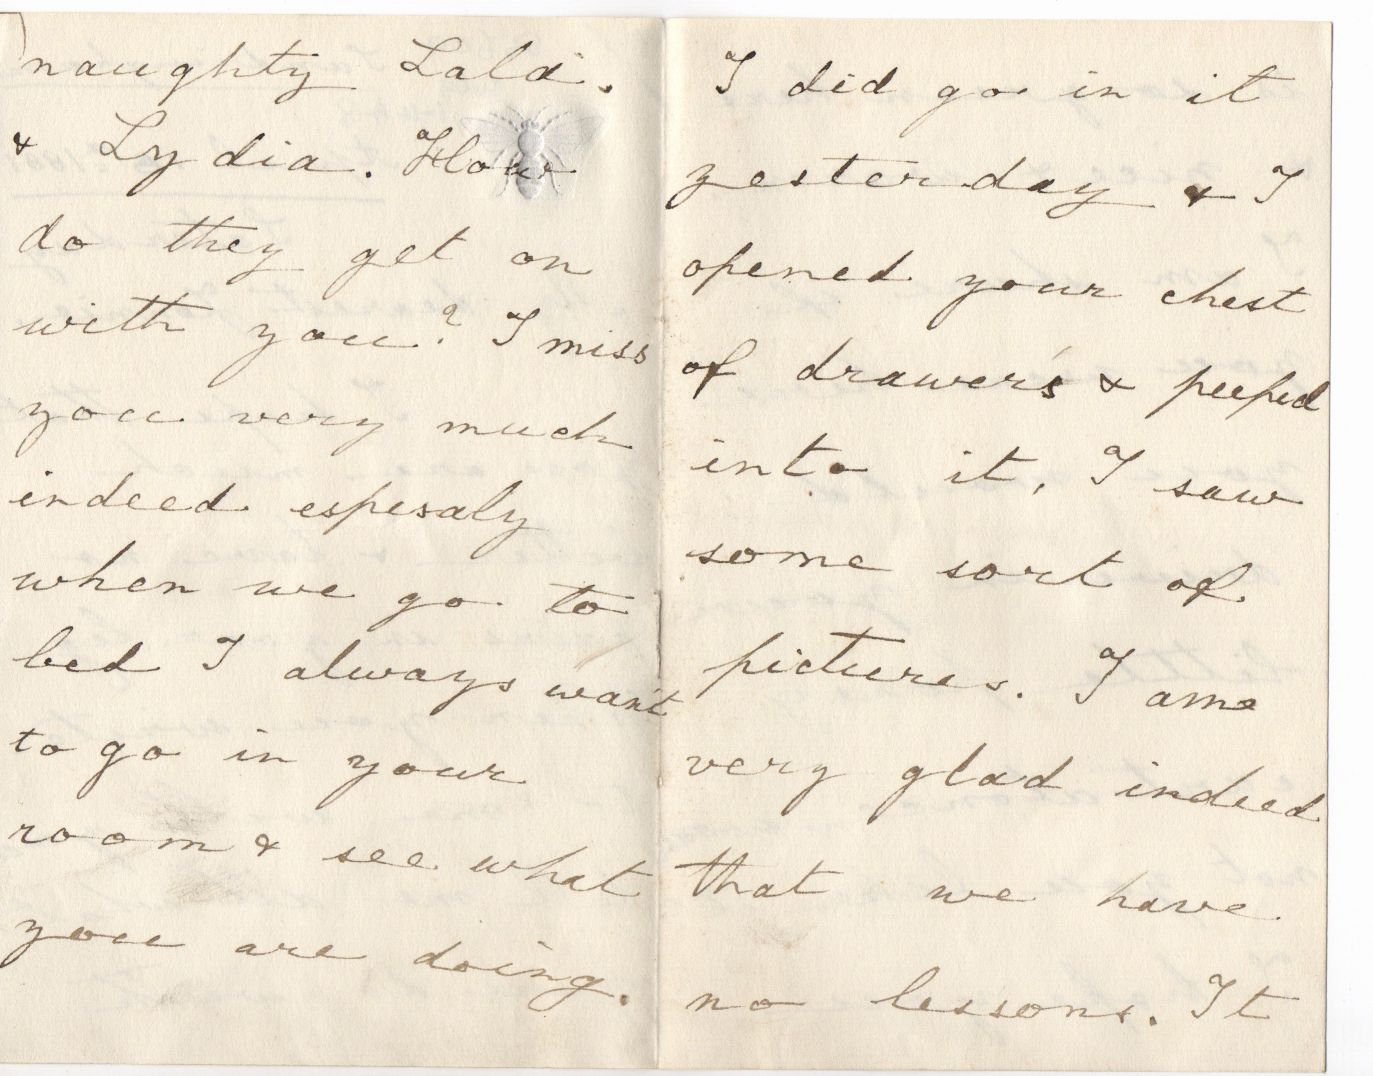 naughty Lala.
& Lydia. How
do they get on
with you? I miss
you very much
indeed espesaly
when we go to
bed I always want
to go in your
room & see what
you are doing.
I did go in it
yesterday & I
opened your chest
of drawer's & peeped
into it, I saw
some sort of
pictures. I ame
very glad indeed
that we have
no lessons. It